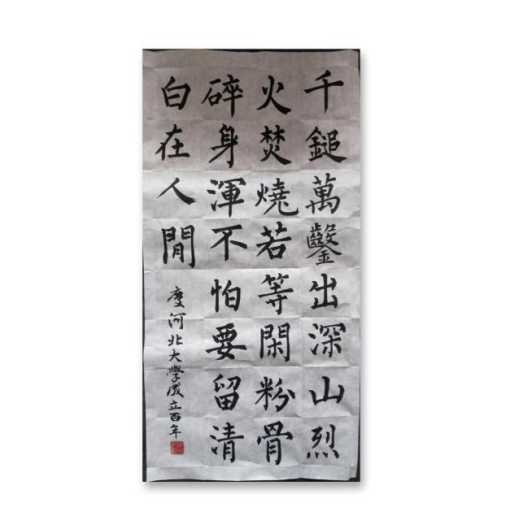 千鎚萬鑿出深山烈
火焚燒若等閑粉骨
碎身渾不怕要留清
白在人間
度河北大學成立百年